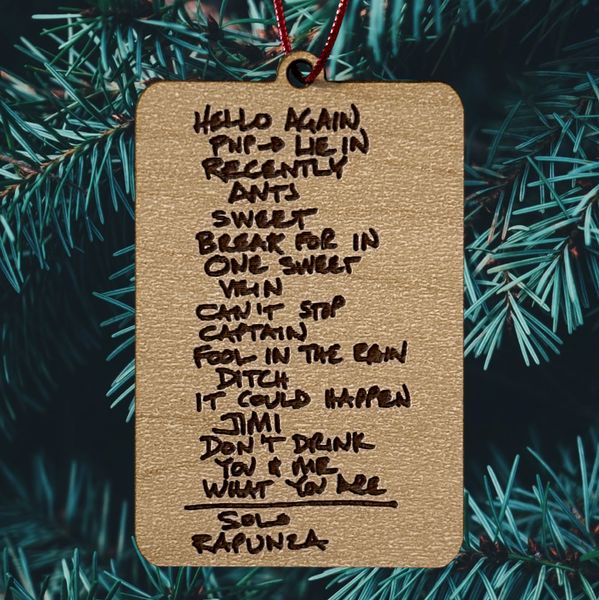 HELLO AGAIN
PNP-D LIE IN
RECENTLY
ANTS
SWEET
BREAK FOR IN
ONE SWEET
VEIN
CAN'T STOP
CAPTAIN
FOOL IN THE RAIN
DITCH
IT COULD HAPPEN
JIMI
DON'T DRINK
YOU & ME
WHAT YOU ARE
SOLO
RAPUNZA